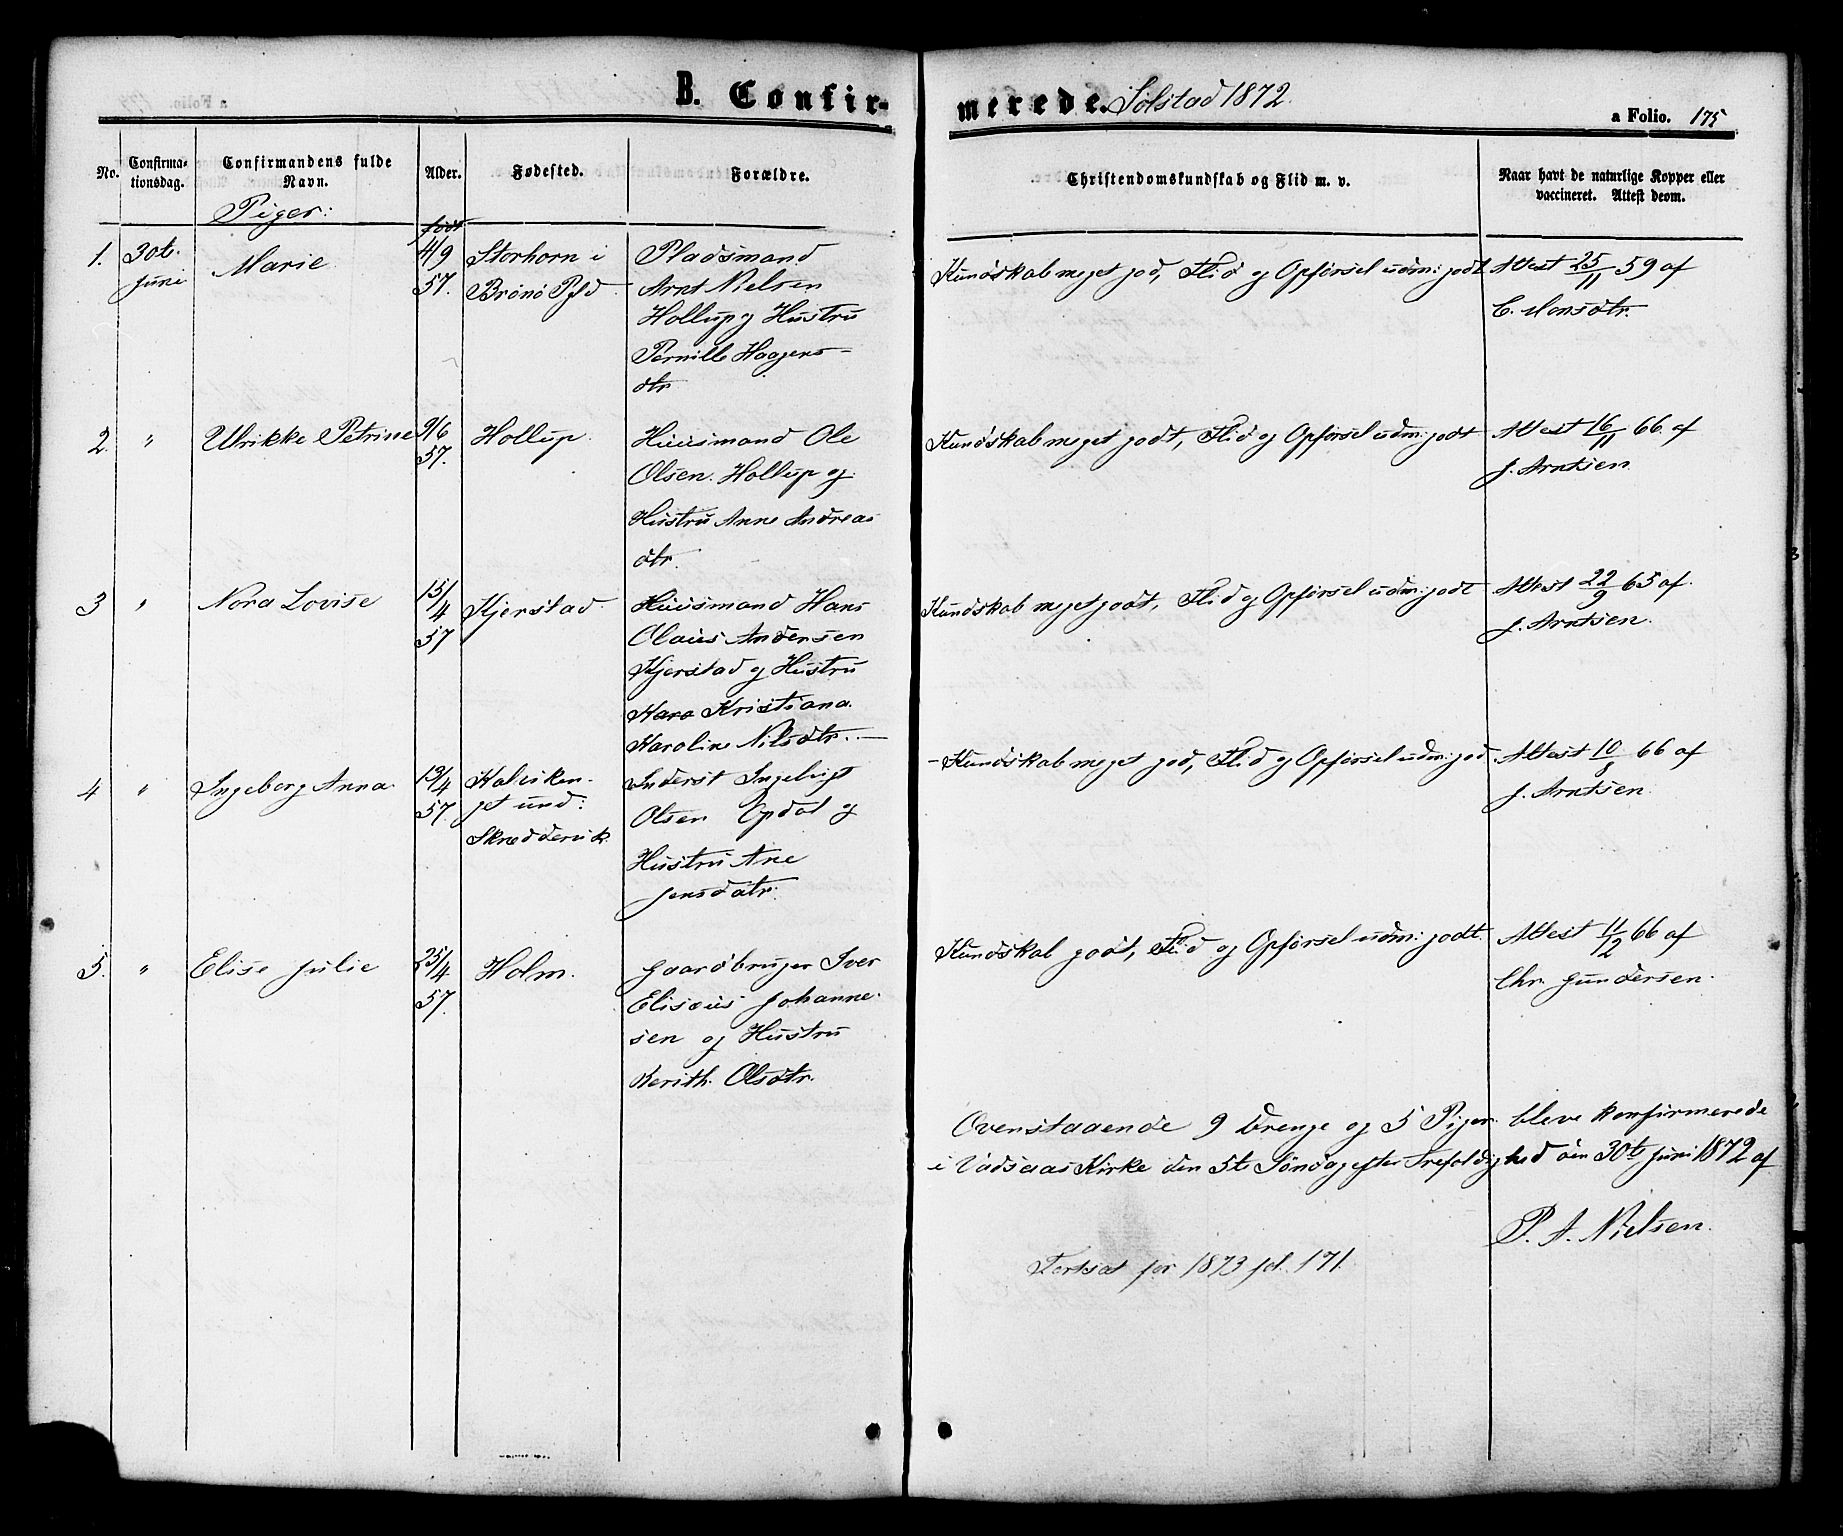 B. Confirmerede. Solstad 1872.
a Folio. 175
No.
Confirmationsdag.
Confirmandens fulde Navn.
Alder.
Fødested.
Forældre.
Christendomskundskab og Flid m. v.
Naar havt de naturlige Kopper eller
vaccineret. Attest derom.
Piger:
født
1.
30te
Juni
Marie
4/9
57.
Storhorn i
Brønø Pgld
Pladsmand
Arnt Nielsen
Hollup og Hustru
Pernille Haagens-
dtr.
Kundskab meget god, Flid og Opførsel udm: godt
Attest 25/11 59 af
C. Monsdtr.
2.
"
Ulrikke Petrine
9/6
57.
Hollup.
Huusmand Ole
Olsen Hollup og
Hustru Anne Andreas
dtr.
Kundskab meget godt, Flid og Opførsel udm: godt
Attest 16/11 66 af
J. Arntsen
3
"
Nora Lovise
15/4
57
Kjerstad
Huusmand Hans
Olaus Andersen
Kjerstad og Hustru
Kara Kristiana
Karoline Nilsdtr. –
Kundskab meget godt, Flid og Opførsel udm: godt
Attest 22/9 65 af
J. Arntsen.
4
"
Ingeborg Anna
19/4
57.
Kalviken-
get und:
Skreddervik
Inderst Ingebrigt
Olsen Opdal og
Hustru Ane
Jensdatr.
- Kundskab meget god, Flid og Opførsel udm: god
Attest 10/8 66 af
J. Arntsen
5.
"
Elise Julie
25/4
57.
Holm.
Gaardbruger Iver
Elisæus Johanne-
sen og Hustru
Berith Olsdtr.
Kundskab godt, Flid og Opførsel udm: godt.
Attest 11/2 66 af
Chr. Gundersen.
Ovenstaaende 9 Drenge og 5 Piger bleve konfirmerede
i Vadsaas Kirke den 5te Søndag efter Trefoldighed den 30te Juni 1872 af
P. A. Nielsen.
Fortsat for 1873 fol. 171.